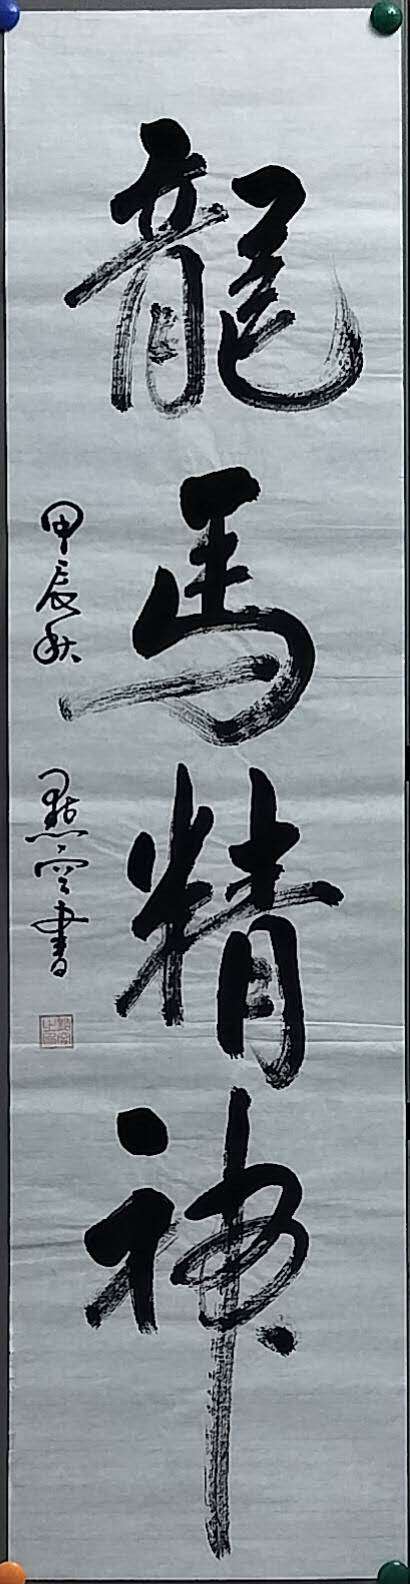 龍馬精神
甲辰秋
點空書